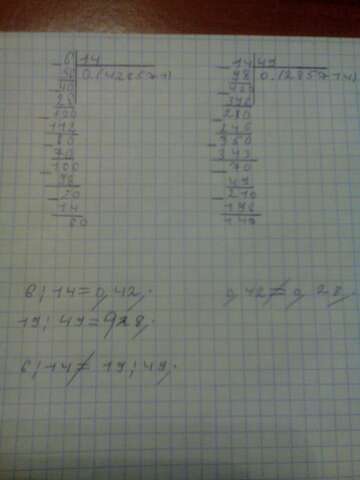 6 | 14
0,(428571)
40
28
120
112
80
70
100
98
20
14
60
14 | 49
98
0,(285714)
420
280
245
350
343
70
49
210
196
140
6 : 14 = 0,42.
0,42 ≠ 0,28.
19 : 49 = 0,28.
6 : 14 ≠ 19 : 49.